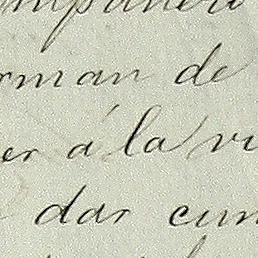 mpañeri
rman de
er á la vi
dar cum